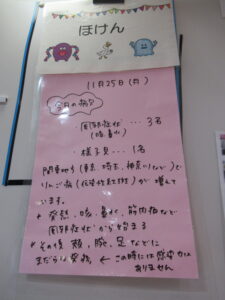 ほけん
11月25日(月)
今日の病気
風邪症状… 3名
(咳、鼻水)
・様子見… 1名
関東地方(東京、埼玉、神奈川など)で
りんご病(伝染性紅斑)が増えて
います。
* 発熱、咳、鼻水、筋肉痛など
風邪症状から始まる
* その後、頬、腕、足などに
まだらな発疹 ← この時には感染力は
ありません